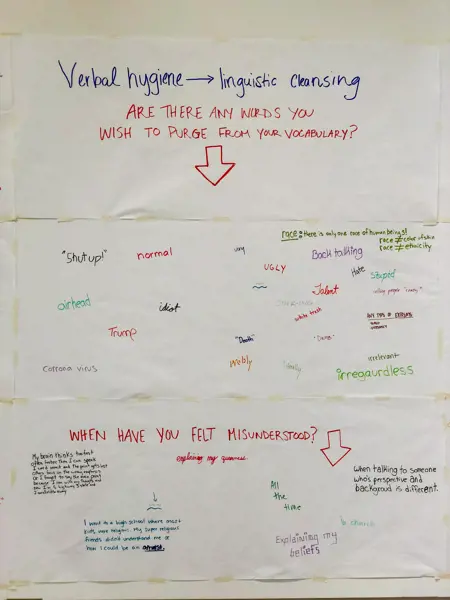 Verbal hygiene → linguistic cleansing
ARE THERE ANY WORDS YOU
WISH TO PURGE FROM YOUR VOCABULARY?
race: there is only one race of human beings!
race ≠ color of skin
race ≠ ethnicity
"Shut up!"
normal
Back talking
UGLY
Hate
Stupid
airhead
idiot
Talent
white trash
Trump
"Death"
"Damn"
Webly
irrelevant
Corrona virus
irregaurdless
WHEN HAVE YOU FELT MISUNDERSTOOD?
explaining my queerness
My brain thinks too fast
When talking to someone
who's perspective and
background is different.
All
the
time
I went to a high school where most
kids were religious. My super religious
friends didn't understand me or
how I could be an atheist.
church
Explaining my
beliefs